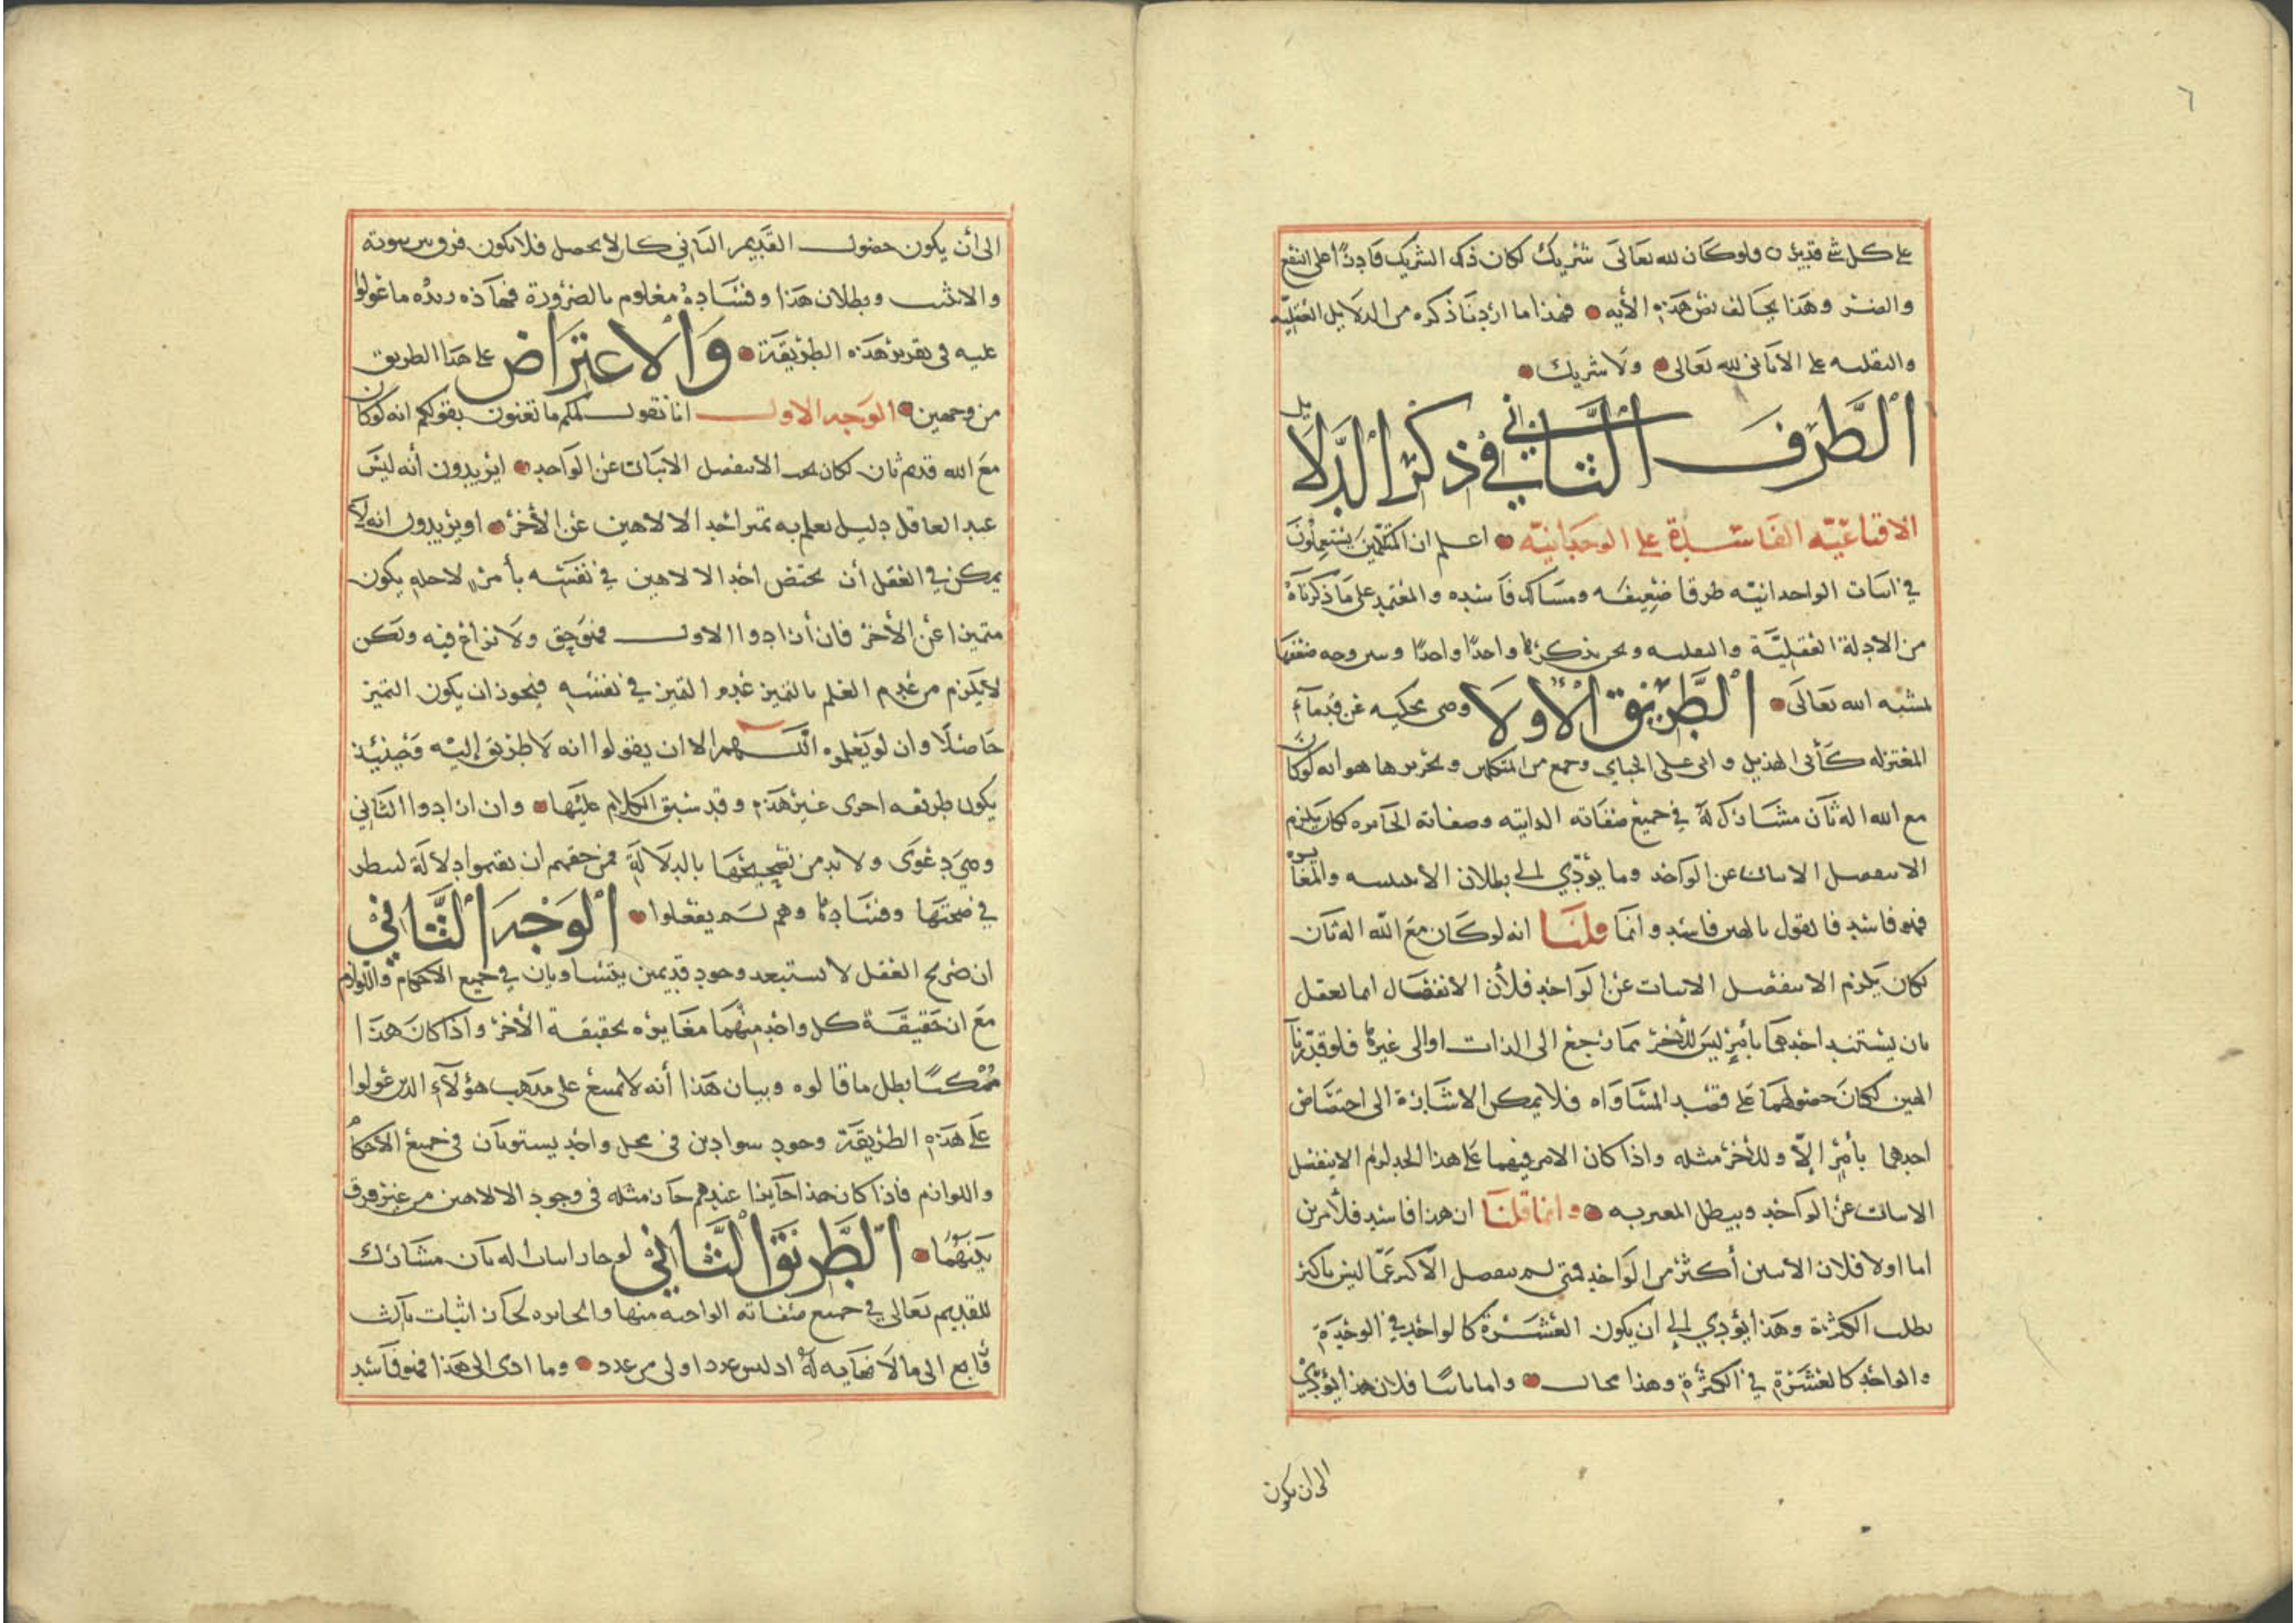 ٦
على كل شي قدير ٥ ولو كان لله تعالى شريك لكان ذلك الشريك قادرًا على النفع
والضر وهذا يخالف نص هذه الأيه فهذا ما اردنا ذكره من الدلايل العقليه
والنقليه على الا ثاني لله تعالى ولا شريك
الطرف الثاني في ذكر الدلايل
الاقناعيّه الفاسدة على الوحدانيّه اعلم ان المتكلمين يستعملون
في اثبات الواحدانيّه طرقا ضعيفه ومسالك فاسده والمعتمد على ما ذكرناه
من الادلة العقليّة والنقليه ونحن نذكرها واحدًا واحدًا ونبين وجه ضعفها
بمشية الله تعالى الطريق الأولا وهي محكيه عن قدماء
المعتزله كأبي الهذيل وابي علي الجباي وجمع من المتكلمين وتحريرها هو انه لو كان
مع الله اله ثان مشارك له في جميع صفاته الذاتيه وصفاته الجائزه لكان يلزم
الا ينفصل الاثنان عن الواحد وما يؤدّي الى بطلان الاثنينيه والمغايره
فهو فاسد فالقول بالهين فاسد وانما قلنا انه لو كان مع الله اله ثان
لكان يلزم الا ينفصل الاثنان عن الواحد فلأن الانفصال انما يعقل
بان يستند احدهما بأمر ليس للأخر مما يرجع الى الذات او الى غيرها فلو قدّرنا
الهين لكان حصولهما على قصد المساواه فلا يمكن الاشارة الى اختصاص
احدهما بأمر الّا وللأخر مثله واذا كان الامر فيهما على هذا الحد لزم الا ينفصل
الاثنان عن الواحد ويبطل الغيريه وانما قلنا ان هذا فاسد فلأمرين
اما اولا فلان الاثنين أكثر من الواحد فمتى لم ينفصل الأكثر عمّا ليس باكثر
بطلت الكثرة وهذا يؤدي الى ان يكون العشرة كالواحد في الوحدة
والواحد كالعشرة في الكثرة وهذا محال واما ثانيا فلان هذا يؤدّي
الى ان يكون
الى أن يكون حصول القديم الثاني كان لا يحصل فلا يكون فرق بين ثبوته
والا يثبت وبطلان هذا وفساده معلوم بالضرورة فهذه زبدة ما عولوا
عليه في تقرير هذه الطريقة والاعتراض على هذا الطريق
من وجهين الوجه الاول انا نقول لكم ما تعنون بقولكم انه لو كان
مع الله قديم ثان لكان يجب الا ينفصل الاثنان عن الواحد ايريدون أنه ليس
عند العاقل دليل يعلم به تميز احد الالاهين عن الأخر او يريدون انه لا
يمكن في العقل أن يختص احد الالاهين في نفسه بأمر لاجله يكون
متميزا عن الأخر فان أرادوا الاول فهو حق ولا نزاع فيه ولكن
لا يلزم من عدم العلم بالتميز عدم التميز في نفسه فيجوز ان يكون التميز
حاصلًا وان لو يعلموه اللهم الا ان يقولوا انه لا طريق إليه فحينئذ
يكون طريقه اخرى غير هذه وقد سبق الكلام عليها وان ارادوا الثاني
وهي دعوى ولا بد من تصحيحها بالدلالة فمن حقهم ان يقيموا دلالة لينظر
في صحتها وفسادها وهم لم يفعلوا الوجه الثاني
ان صريح العقل لا يستبعد وجود قديمين يتساويان في جميع الاحكام واللوازم
مع ان حقيقة كل واحد منهما مغايره لحقيقة الأخر واذا كان هذا
ممكنًا بطل ما قالوه وبيان هذا أنه لا يمتنع على مذهب هؤلآء الذين عولوا
على هذه الطريقة وجود سوادين في محل واحد يستويان في جميع الاحكام
واللوازم فاذا كان هذا جايزا عندهم جاز مثله في وجود الالاهين من غير فرق
بينهما الطريق الثاني لو جاز اثبات اله ثان مشارك
للقديم تعالى في جميع صفاته الواجبه منها والجائزه لجاز اثبات ثالث
ورابع الى ما لا نهايه له اذ ليس عدد اولى من عدد وما ادى الى هذا فهو فاسد